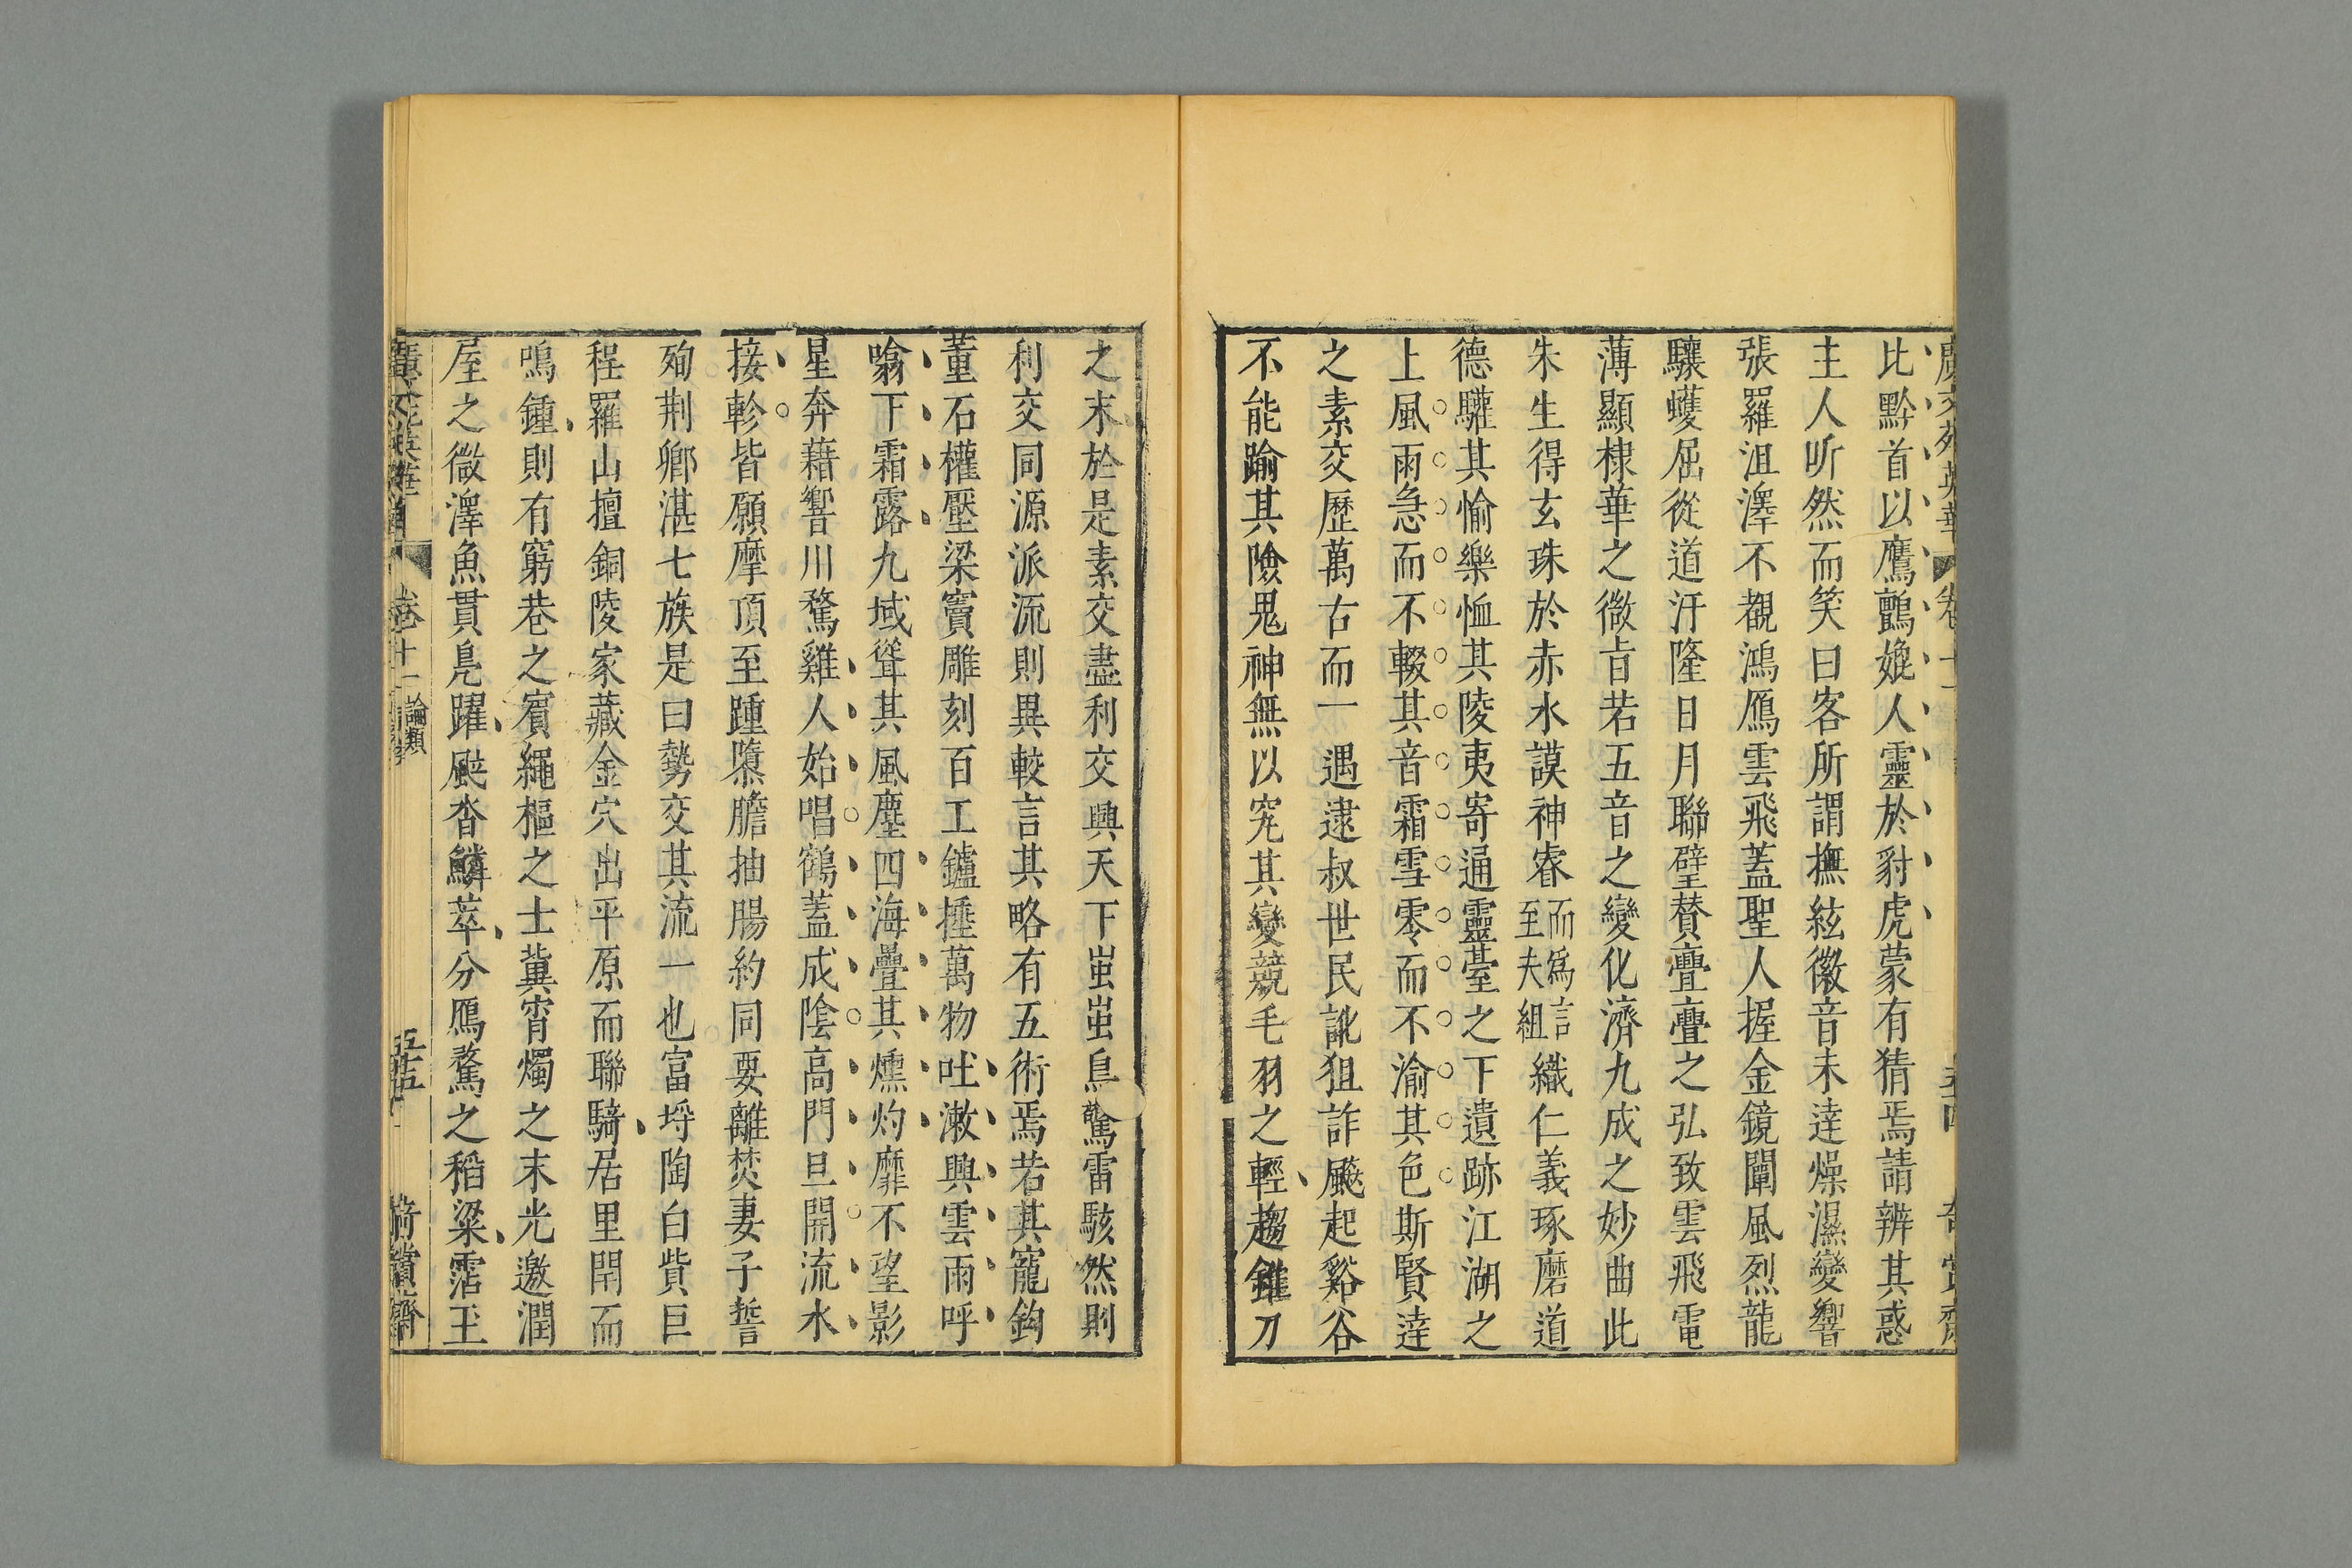 廣文苑英華 卷十一 五十四 奇賞齋
比黔首以鷹鸇媲人靈於豺虎蒙有猜焉請辨其惑
主人听然而笑曰客所謂撫絃徽音未逹燥濕變響
張羅沮澤不覩鴻鴈雲飛蓋聖人握金鏡闡風烈龍
驤蠖屈從道汙隆日月聯璧賛亹亹之弘致雲飛電
薄顯棣華之微旨若五音之變化濟九成之妙曲此
朱生得玄珠於赤水謨神睿而爲言至夫組織仁義琢磨道
德驩其愉樂恤其陵夷寄通靈臺之下遺跡江湖之
上風雨急而不輟其音霜雪零而不渝其色斯賢逹
之素交歷萬古而一遇逮叔世民訛狙詐飈起谿谷
不能踰其險鬼神無以究其變競毛羽之輕趨錐刀
之末於是素交盡利交興天下蚩蚩鳥驚雷駭然則
利交同源派流則異較言其略有五術焉若其寵鈞
董石權壓梁竇雕刻百工鑪捶萬物吐漱興雲雨呼
噏下霜露九域聳其風塵四海疊其燻灼靡不望影
星奔藉響川騖雞人始唱鶴蓋成陰高門旦開流水
接軫皆願摩頂至踵隳膽抽腸約同要離焚妻子誓
殉荆卿湛七族是曰勢交其流一也富埒陶白貲巨
程羅山擅銅陵家藏金穴出平原而聯騎居里閈而
鳴鍾則有窮巷之賓繩樞之士冀宵燭之末光邀潤
屋之微澤魚貫鳧躍颯沓鱗萃分鴈騖之稻粱霑玉
廣文苑英華 卷十一 論類 五十五 奇賞齋